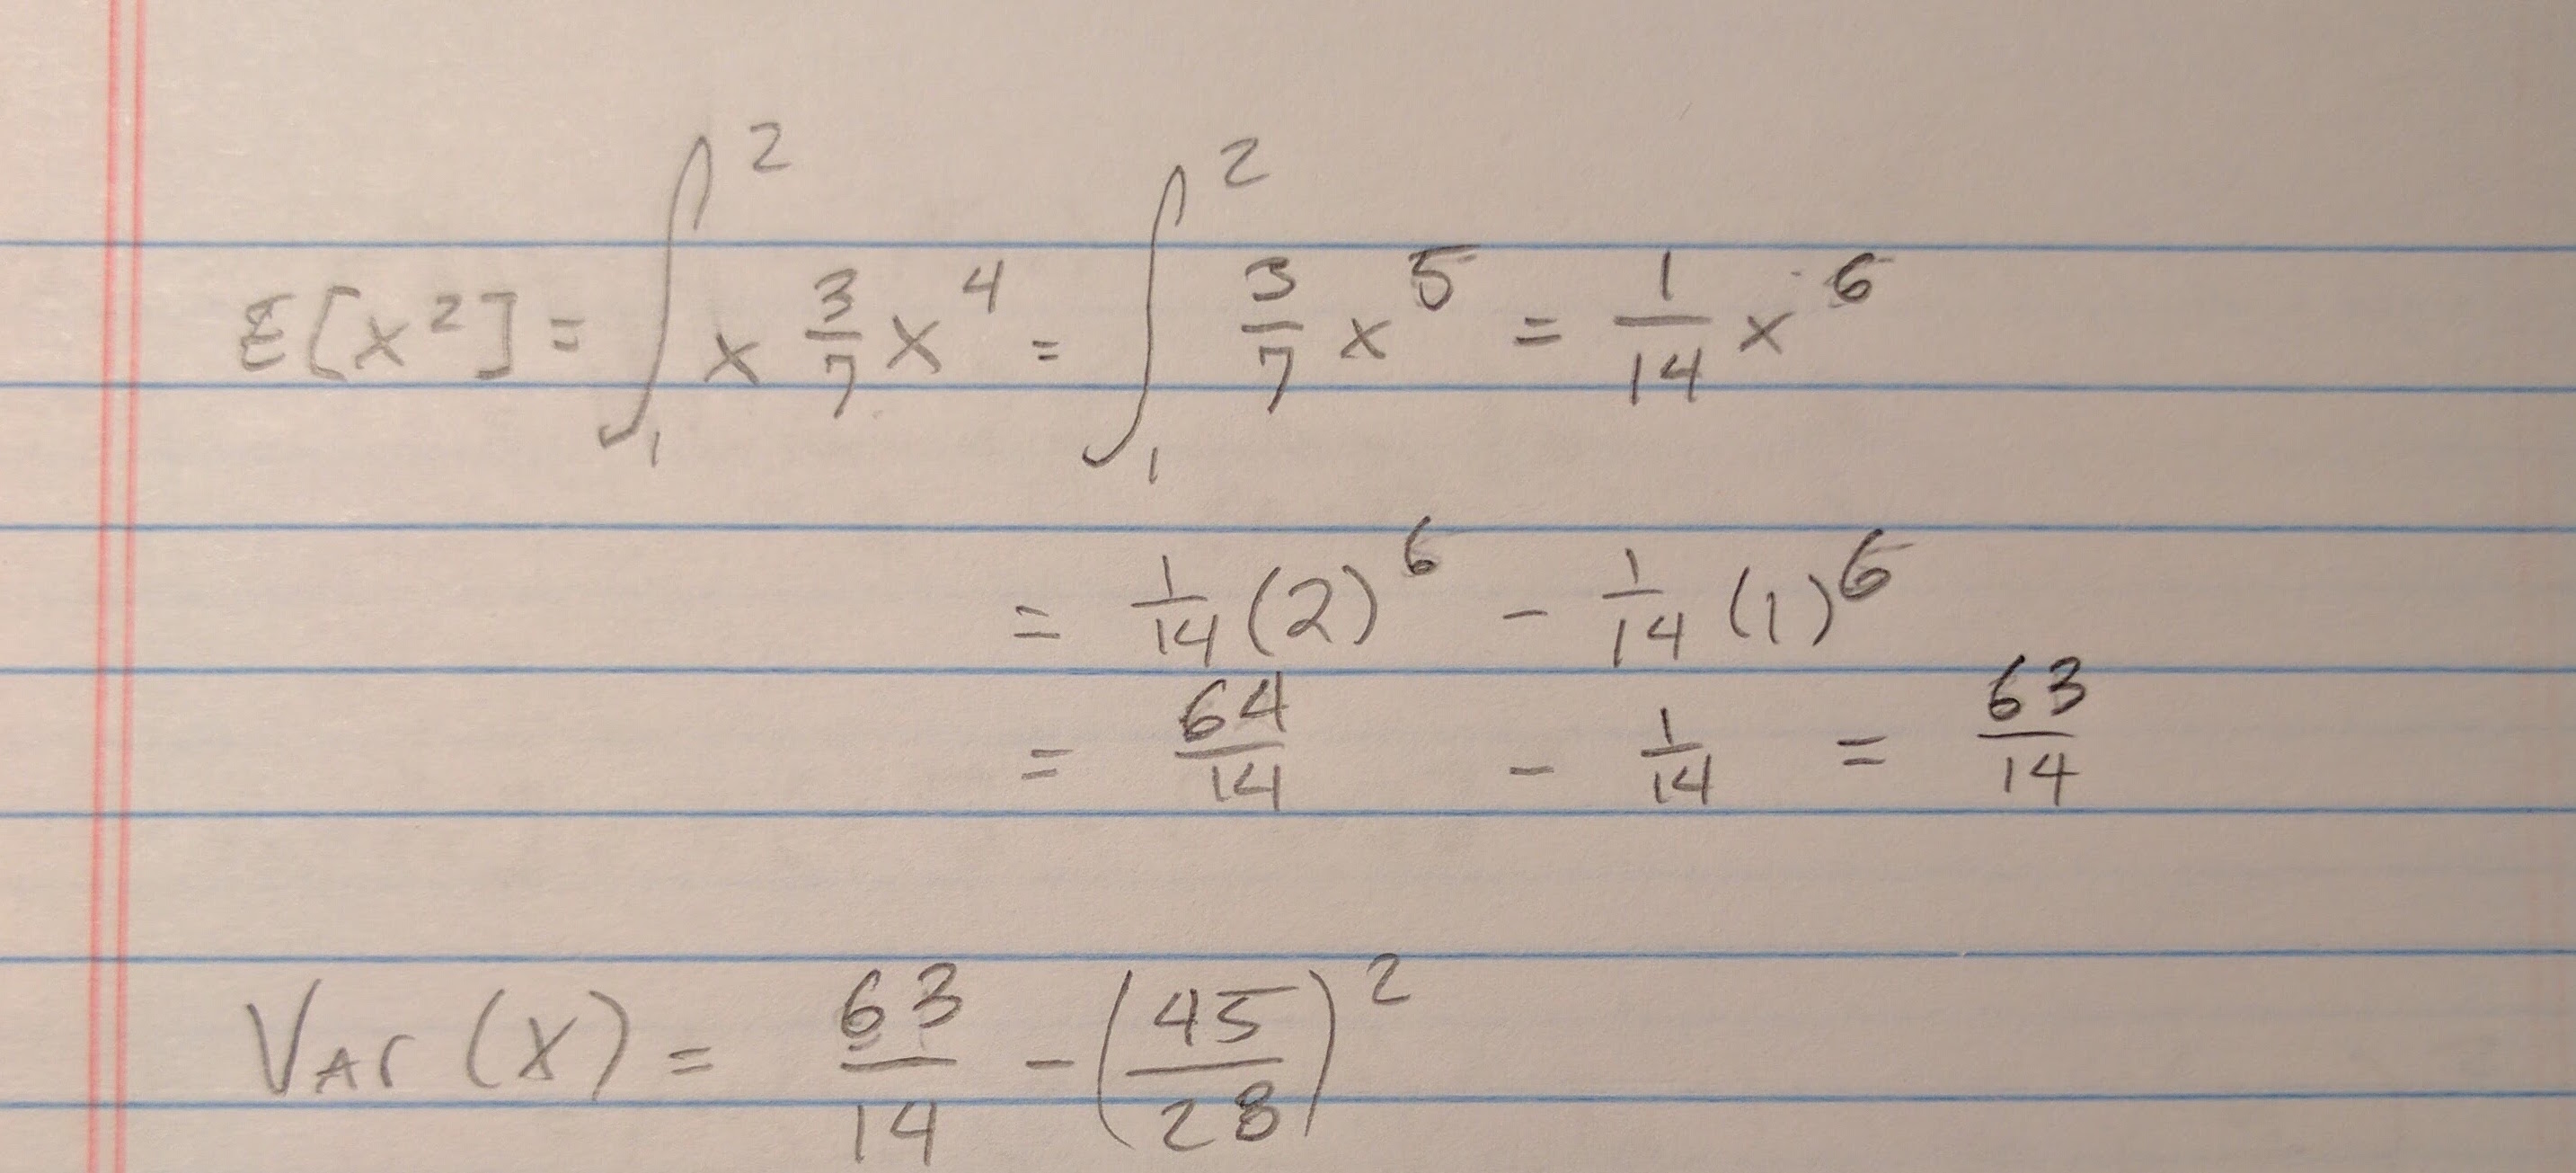 E[x²] = ∫₁² x 3/7 x⁴ = ∫₁² 3/7 x⁵ = 1/14 x⁶
= 1/14 (2)⁶ - 1/14 (1)⁶
= 64/14 - 1/14 = 63/14
Var(X) = 63/14 - (45/28)²